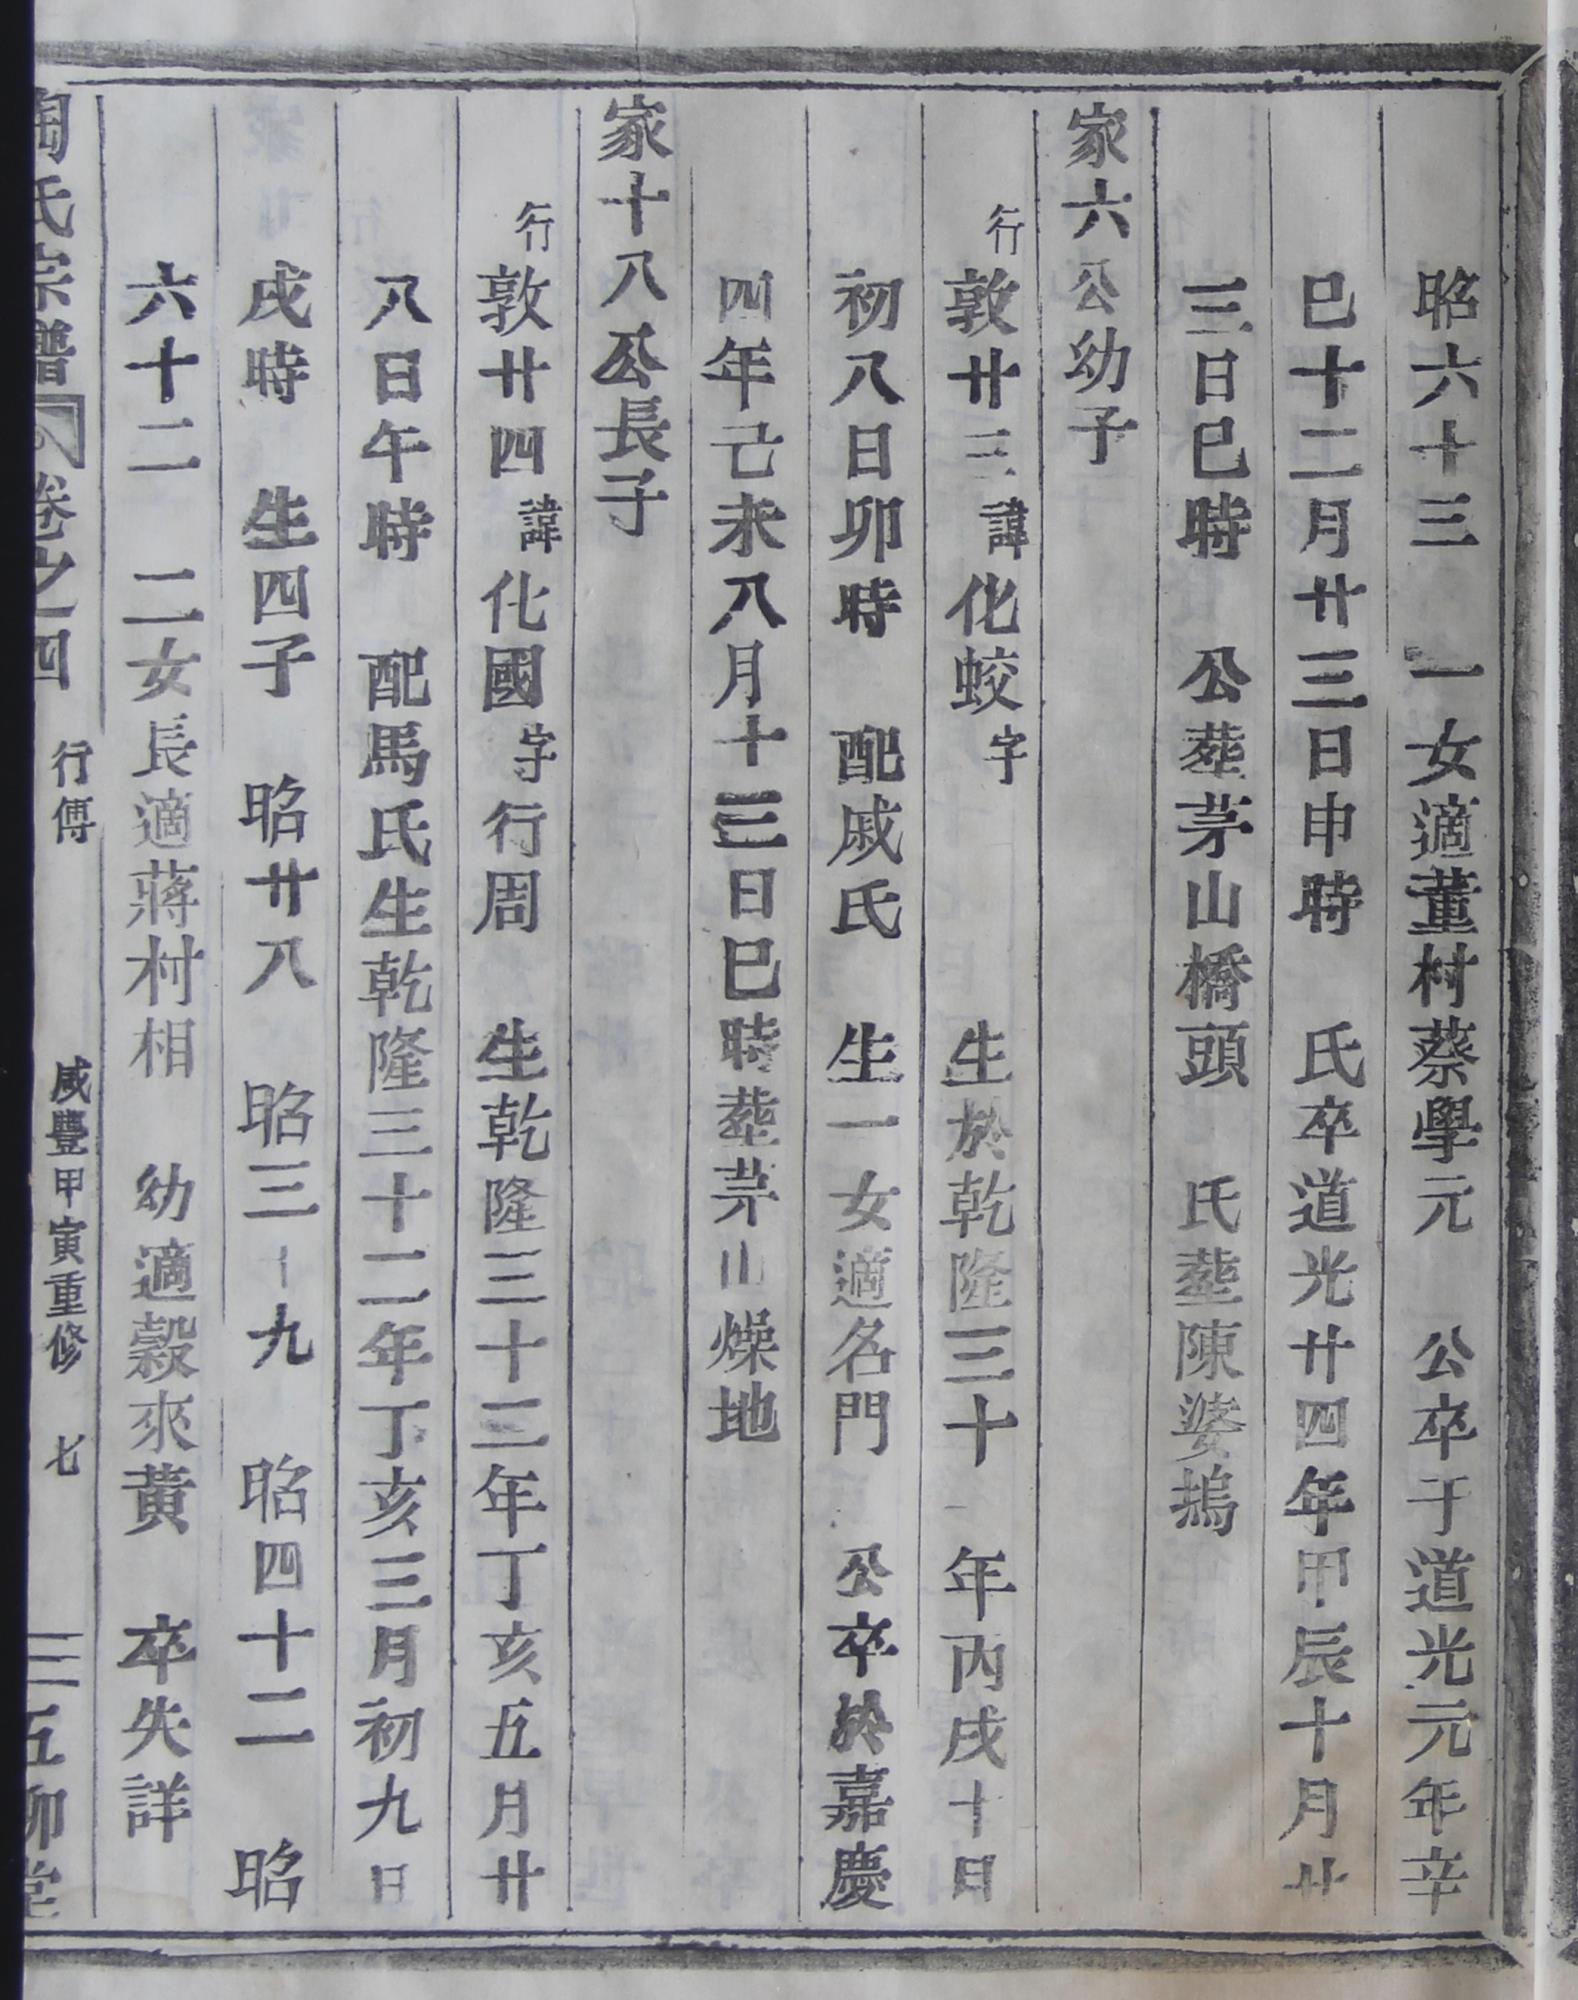 昭六十三　一女適董村蔡學元　公卒于道光元年辛
巳十二月廿三日申時　氏卒道光廿四年甲辰十月廿
三日巳時　公塟茅山橋頭　氏塟陳婆塢
家六公幼子
行敦廿三諱化蛟字　生於乾隆三十一年丙戌十日
初八日卯時　配戚氏　生一女適名門　公卒於嘉慶
四年己未八月十三日巳時塟茅山燥地
家十八公長子
行敦廿四諱化國字行周　生乾隆三十三年丁亥五月廿
八日午時　配馬氏生乾隆三十二年丁亥三月初九日
戌時　生四子　昭廿八　昭三十九　昭四十二　昭
六十二　二女長適蔣村相　幼適穀來黃　卒失詳
陶氏宗譜　卷之四　行傳　咸豐甲寅重修　七　三五柳堂